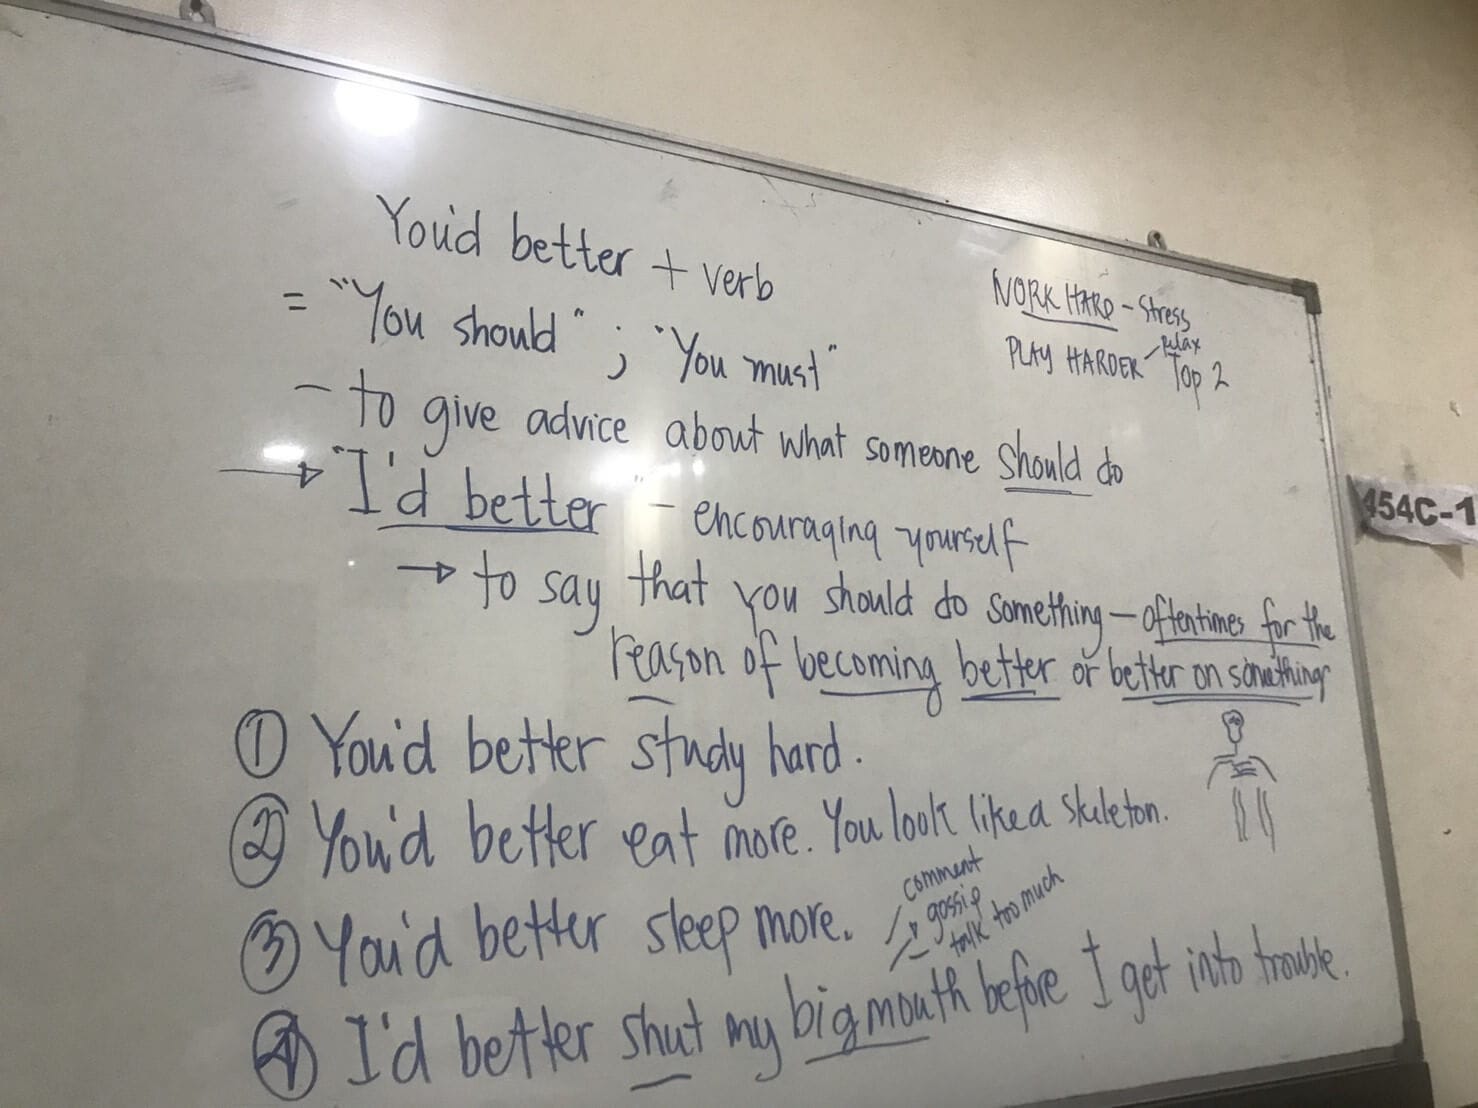 You'd better + verb
= "You should" ; "You must"
- to give advice about what someone should do
→ "I'd better" - encouraging yourself
→ to say that you should do something - oftentimes for the
reason of becoming better or better on something
① You'd better study hard.
② You'd better eat more. You look like a skeleton.
③ You'd better sleep more.
comment
gossip
talk too much
④ I'd better shut my big mouth before I get into trouble.
WORK HARD - Stress
PLAY HARDER - Relax
Top 2
454C-1